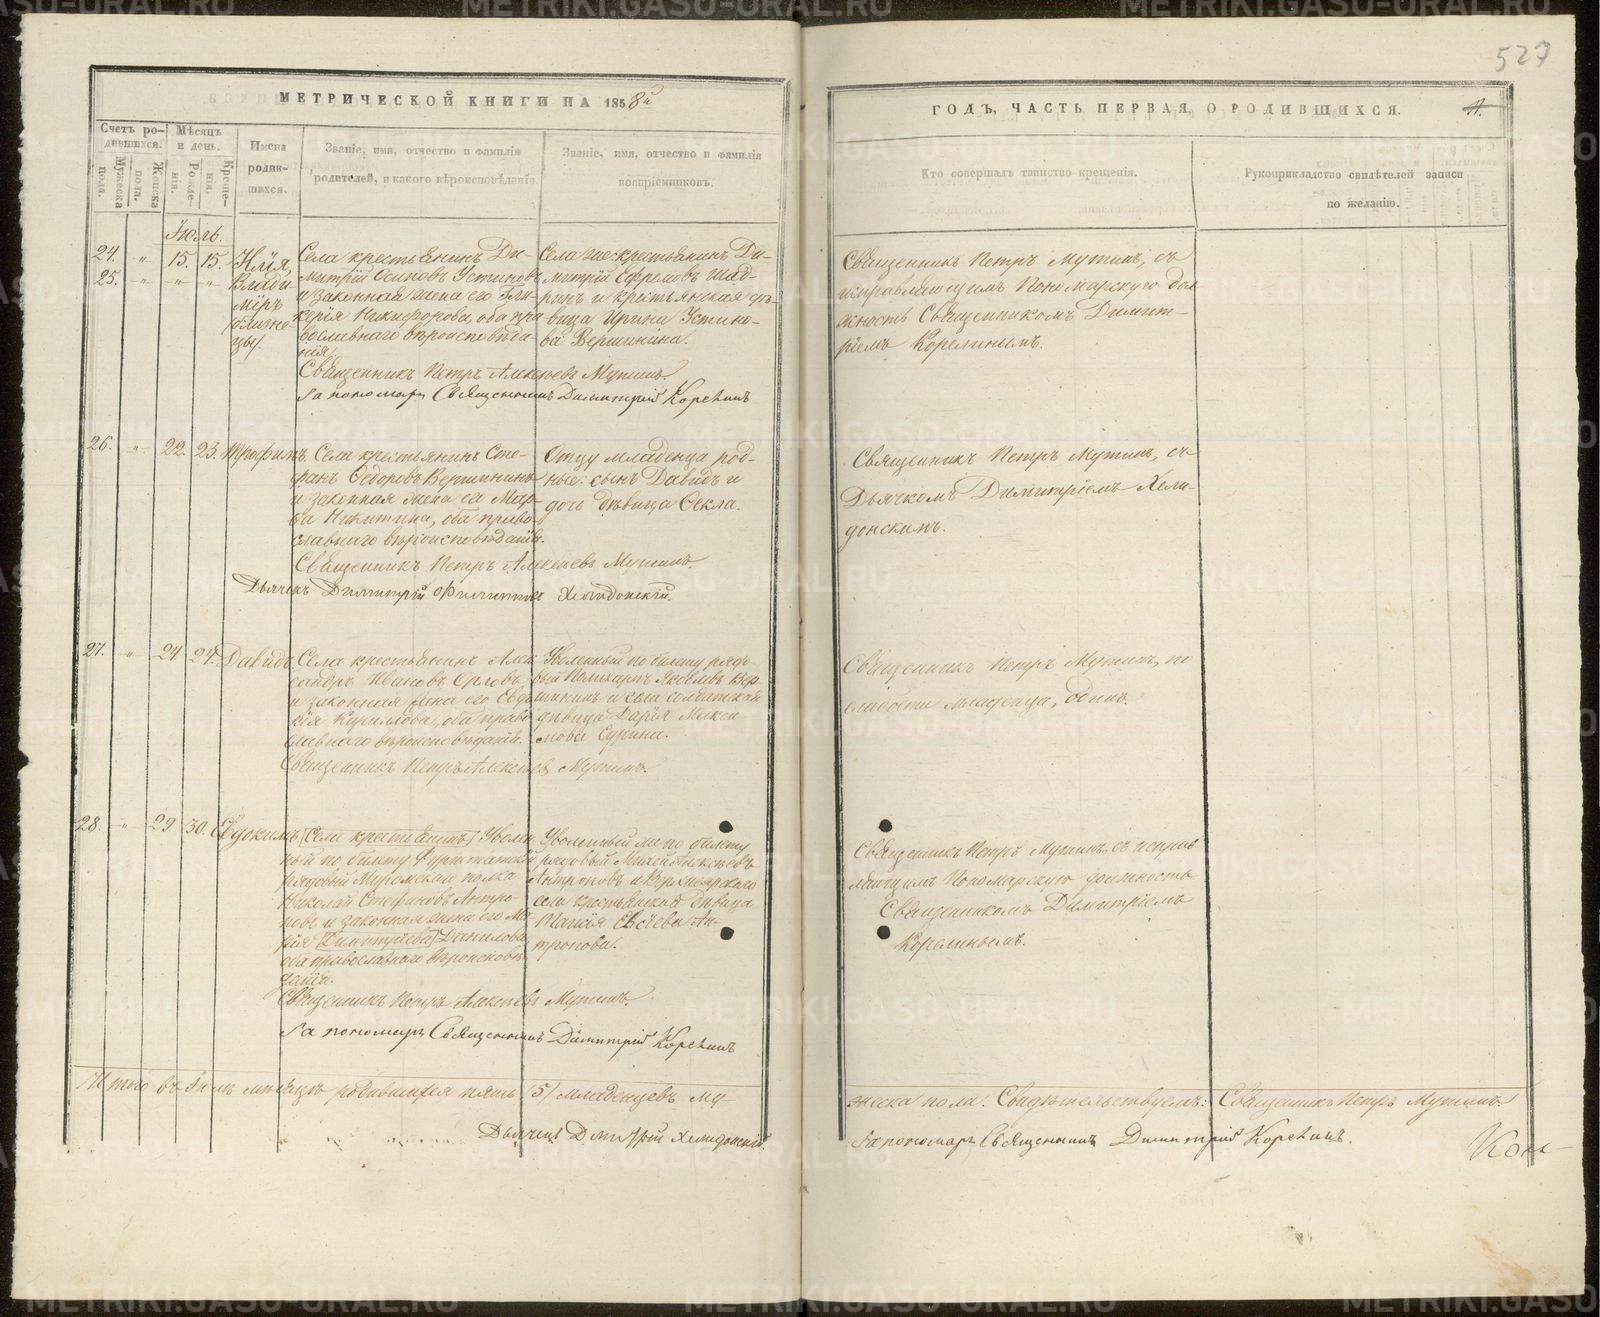 527
МЕТРИЧЕСКОЙ КНИГИ НА 1858й
ГОДЪ, ЧАСТЬ ПЕРВАЯ, О РОДИВШИХСЯ.
Счетъ родившихся.
Мужеска пола.
Женска пола.
Мѣсяцъ и день.
Рожденія.
Крещенія.
Имена родившихся.
Званіе, имя, отчество и фамилія
родителей, и какого вѣроисповѣданія.
Званіе, имя, отчество и фамилія
воспріемниковъ.
Кто совершалъ таинство крещенія.
Рукоприкладство свидѣтелей записи
по желанію.
Іюль.
24. " 15. 15.
25. " " "
Илія,
Влади
міръ
близне
цы.
Села крестьянинъ Ди-
митрій Осиповъ Устиновъ
и законная жена его Гли-
керія Никифорова, оба пра
вославнаго вѣроисповѣда-
нія.
Священникъ Петръ Алексѣевъ Мутинъ.
За пономаря Священникъ Димитрій Корелинъ
Села же крестьянинъ Ди-
митрій Ефремовъ Шад-
ринъ и крестьянская дѣ-
вица Ирина Устино-
ва Вершинина.
Священникъ Петръ Мутинъ, съ
исправляющимъ Пономарскую дол
жность Священникомъ Димит-
ріемъ Корелинымъ.
26. " 22. 23. Трофимъ.
Села крестьянинъ Сте-
фанъ Ѳедоровъ Вершининъ
и законная жена его Мар-
ѳа Никитина, оба право-
славнаго вѣроисповѣданія.
Священникъ Петръ Алексѣевъ Мутинъ.
Дьячекъ Димитрій Филиппов Хелидонскій.
Отцу младенца род-
ные: сынъ Давидъ и
дочь дѣвица Ѳекла.
Священникъ Петръ Мутинъ, съ
Дьячкомъ Димитріемъ Хели-
донскимъ.
27. " 24 24. Давидъ
Села крестьянинъ Алек
сандръ Ивановъ Орловъ
и законная жена его Евдо
кія Кирилова, оба право
славнаго вѣроисповѣданія.
Священникъ Петръ Алексѣев Мутинъ.
Уволенный по билету рядо-
вый Поликарпъ Яковлевъ Вер-
шининъ и села солдатская
дѣвица Дарія Макси
мова Сукина.
Священникъ Петръ Мутинъ, по
слабости младенца, одинъ.
28. " 29 30. Евдокимъ
(Села крестьянинъ) Уволен
ный по билету Фурштатскій
рядовый Муромскаго полка
Николай Стефановъ Антро
повъ и законная жена его Ма
рія (Димитріева) Данилова
оба православнаго вѣроисповѣ
данія.
Священникъ Петръ Алексѣевъ Мутинъ.
За пономаря Священникъ Димитрій Корелинъ
Уволенный же по билету
рядовый Алексѣевъ
Антроповъ и
села крестьянская дѣвица
Евсѣева Ан-
тропова.
Священникъ Петръ Мутинъ съ исправ
ляющимъ Пономарскую должность
Священникомъ Димитріемъ
Корелинымъ.
Итого въ Іюлѣ мѣсяцѣ родившихся пять (5) младенцевъ му
жеска пола. Свидѣтельствуемъ: Священникъ Петръ Мутинъ.
Дьячекъ Димитрій Хелидонскій.
За пономаря Священникъ Димитрій Корелинъ.